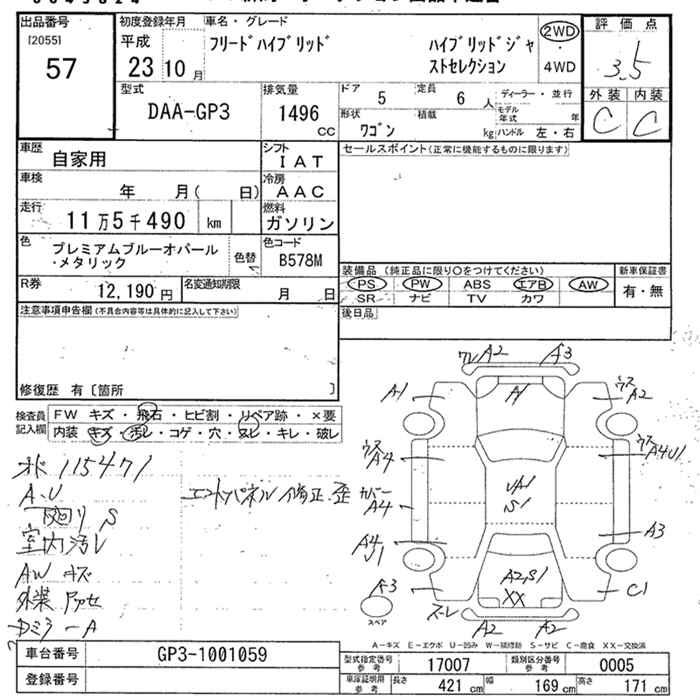 出品番号
[2055]
57
初度登録年月
平成
23 10月
車名・グレード
フリードハイブリッド
ハイブリッドジャ
ストセレクション
2WD
・
4WD
評価点
3.5
外装 内装
C C
型式
DAA-GP3
排気量
1496
cc
ドア 5
定員 6 人
ディーラー・並行
モデル年式 年
形状 ワゴン
積載 kg
ハンドル 左・右
車歴
自家用
シフト
IAT
車検
年 月( 日)
冷房
AAC
走行
11万5千490 km
燃料
ガソリン
色
プレミアムブルーオパール
・メタリック
色替
色コード
B578M
R券
12,190円
名変通知期限
月 日
セールスポイント(正常に機能するものに限ります)
装備品(純正品に限り○をつけてください)
PS PW ABS エアB AW
SR ナビ TV カワ
新車保証書
有・無
後日品
注意事項申告欄(不具合内容等は具体的に記入して下さい)
修復歴 有〔箇所 〕
検査員
記入欄
FW キズ・飛石・ヒビ割・リペア跡・×要
内装 キズ・汚レ・コゲ・穴・スレ・キレ・破レ
オド 115471
A.U
下回り S
室内汚レ
AW キズ
エンドパネル修正.歪
ワレ A2 A3
A1 A1 ウス A2
ウス A4 ウス A4U1
カバー A4
S1
A3
A4
A2,S1
XX
A3 C1
スペア
A2 A2
A-キズ E-エクボ U-凹み W-補修跡 S-サビ C-腐食 XX-交換済
車台番号 GP3-1001059
登録番号
型式指定番号 参考 17007
類別区分番号 参考 0005
車庫証明用 参考 長さ 421 cm 幅 169 cm 高さ 171 cm